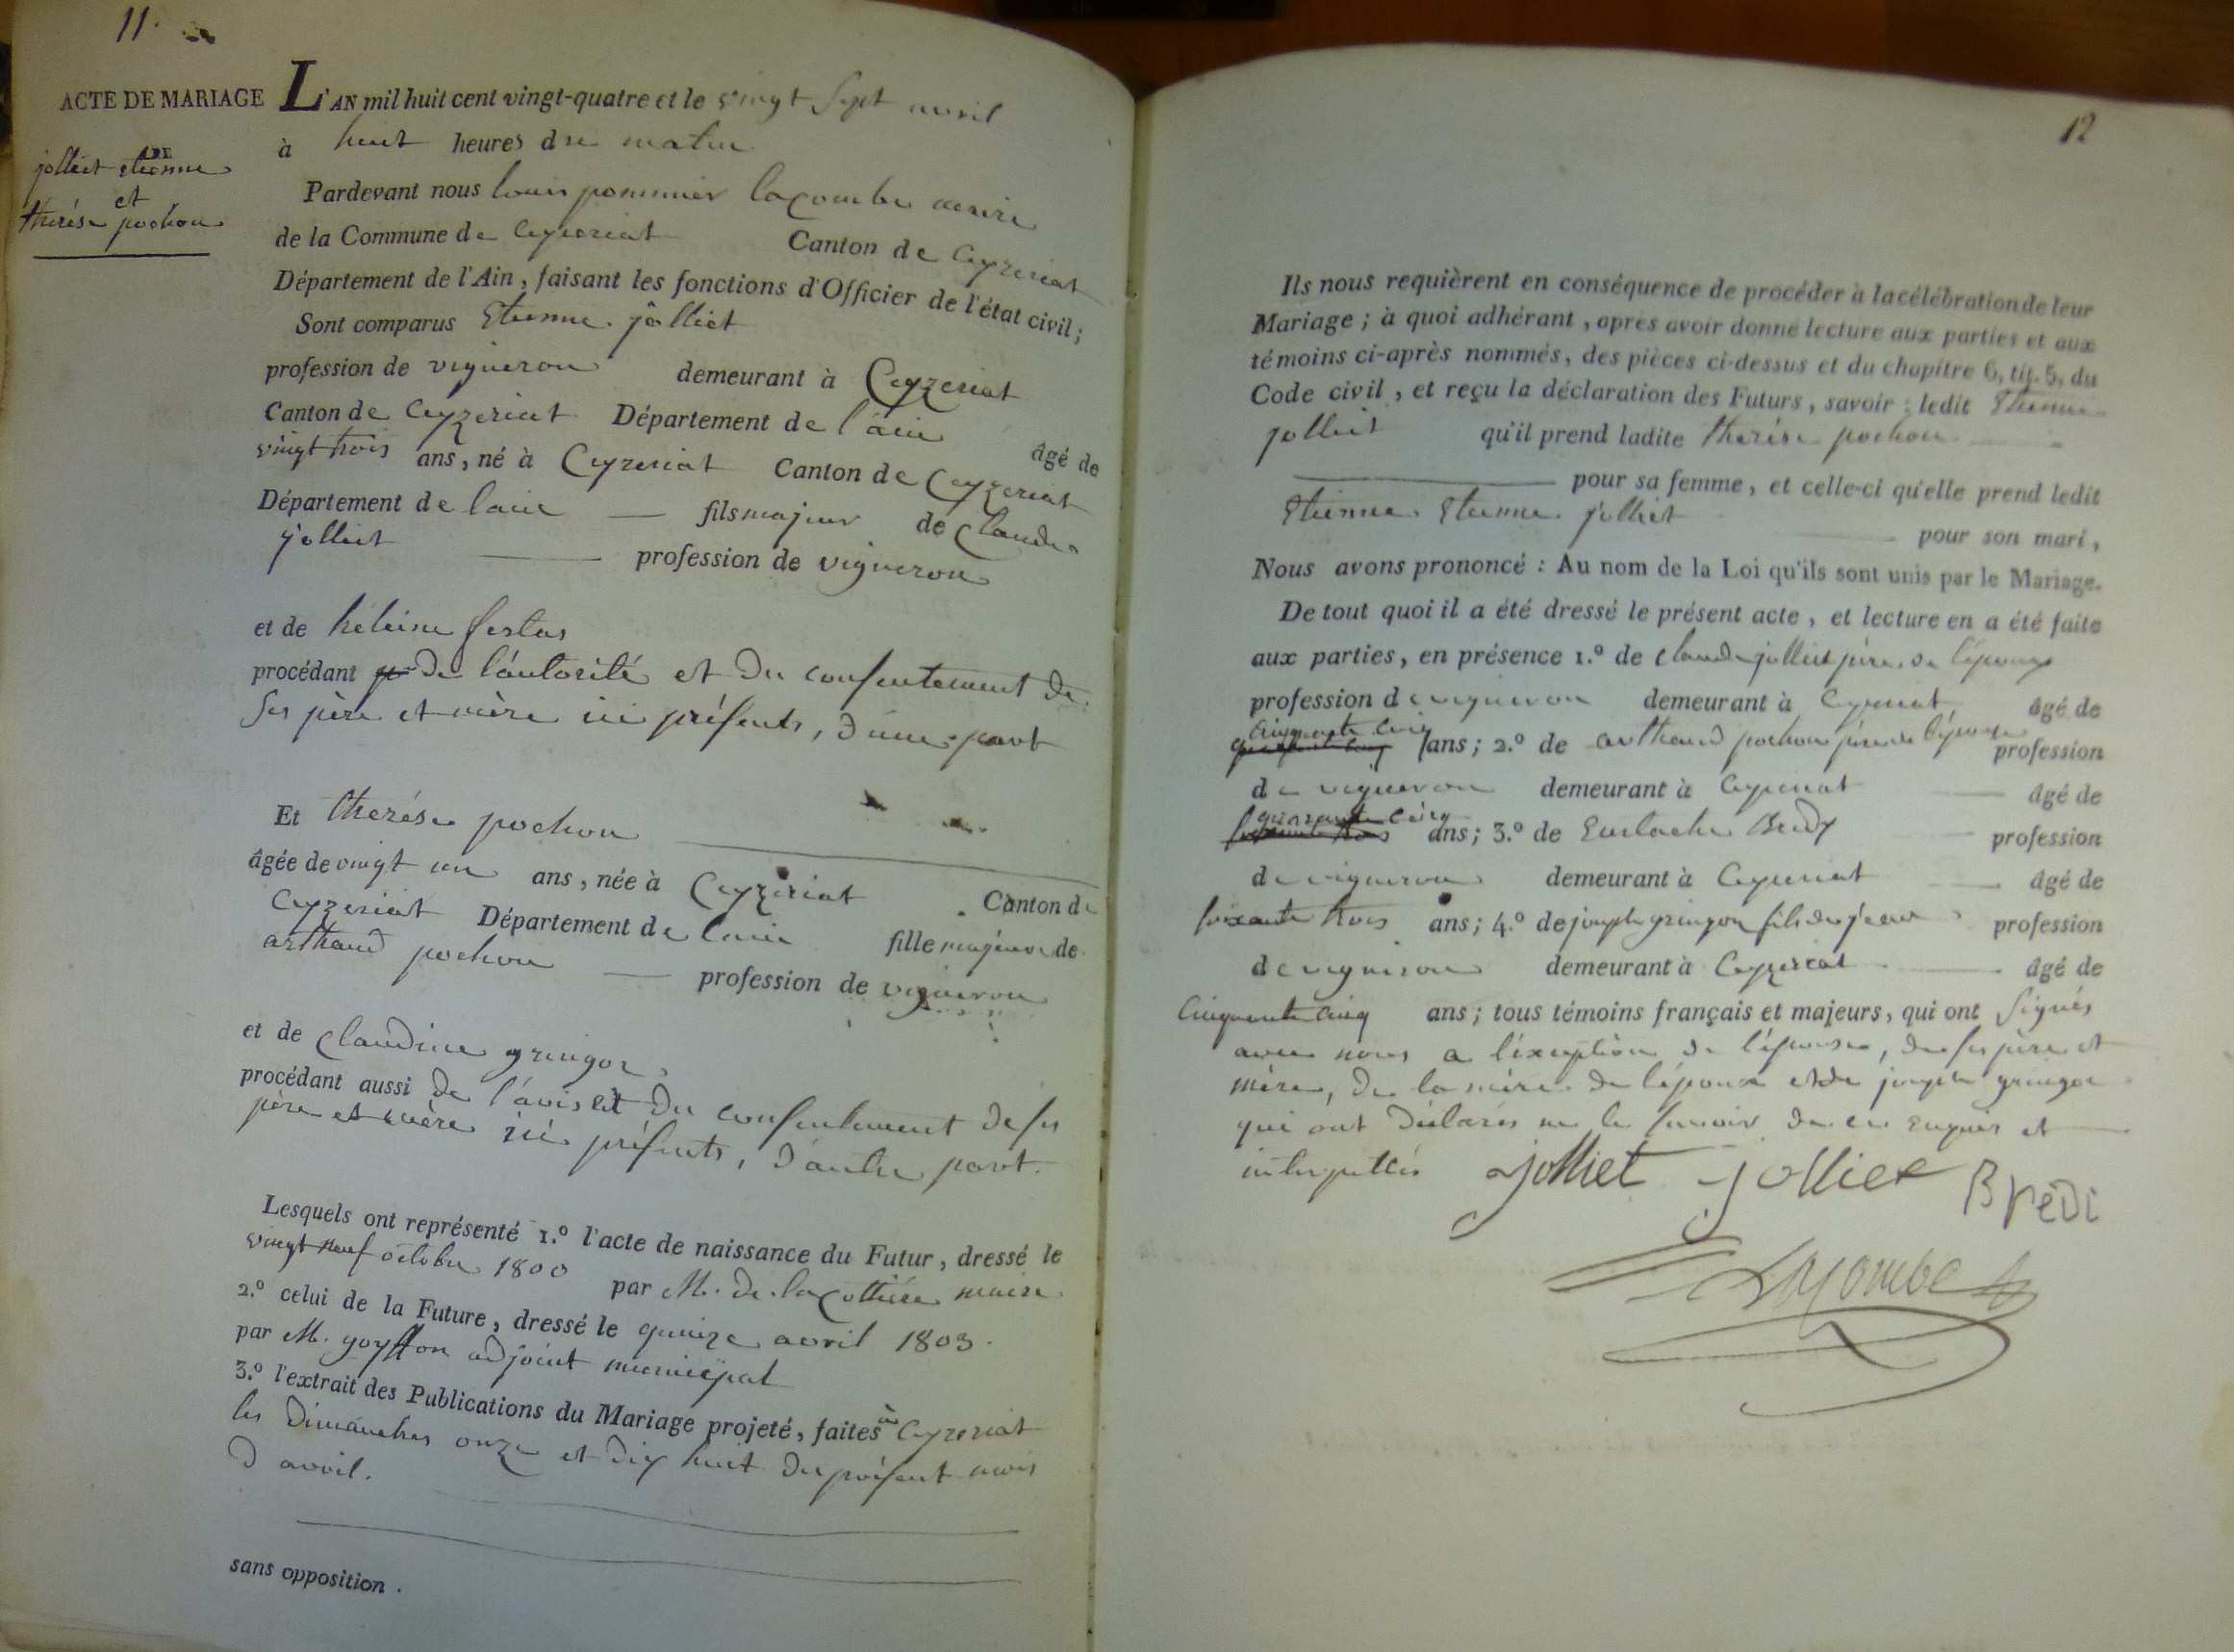 11.
ACTE DE MARIAGE
DE
jolliet etienne
et
thérése pochon
L'AN mil huit cent vingt-quatre et le vingt sept avril
à huit heures du matin
Pardevant nous louis pommier lacombe maire
de la Commune de Ceyzeriat Canton de Ceyzeriat
Département de l'Ain, faisant les fonctions d'Officier de l'état civil;
Sont comparus Etienne jolliet
profession de vigneron demeurant à Ceyzeriat
Canton de Ceyzeriat Département de l'ain âgé de
vingt trois ans, né à Ceyzeriat Canton de Ceyzeriat
Département de l'ain — fils majeur de Claude
jolliet — profession de vigneron
et de héleine festas
procédant de l'autorité et du consentement de
ses père et mère ici présents, d'une part
Et thérése pochon
âgée de vingt un ans, née à Ceyzeriat Canton de
Ceyzeriat Département de l'ain fille majeure de
arthaud pochon — profession de vigneron
et de Claudine gringoz
procédant aussi de l'avis et du consentement de ses
père et mère ici présents, d'autre part.
Lesquels ont représenté 1.º l'acte de naissance du Futur, dressé le
vingt neuf octobre 1800 par M. de lacottiére maire
2.º celui de la Future, dressé le quinze avril 1803.
par M. goyffon adjoint municipal
3.º l'extrait des Publications du Mariage projeté, faites à Ceyzeriat
les dimanches onze et dix huit du présent mois
d'avril.
sans opposition.
12
Ils nous requièrent en conséquence de procéder à la célébration de leur
Mariage; à quoi adhérant, après avoir donné lecture aux parties et aux
témoins ci-après nommés, des pièces ci-dessus et du chapitre 6, tit. 5, du
Code civil, et reçu la déclaration des Futurs, savoir: ledit Etienne
jolliet qu'il prend ladite thérése pochon
pour sa femme, et celle-ci qu'elle prend ledit
Etienne Etienne jolliet pour son mari,
Nous avons prononcé : Au nom de la Loi qu'ils sont unis par le Mariage.
De tout quoi il a été dressé le présent acte, et lecture en a été faite
aux parties, en présence 1.º de claude jolliet père de l'époux
profession de vigneron demeurant à Ceyzeriat âgé de
cinquante cinq ans; 2.º de arthaud pochon père de l'épouse profession
de vigneron demeurant à Ceyzeriat âgé de
quarante cinq ans; 3.º de Eustache Bredy profession
de vigneron demeurant à Ceyzeriat âgé de
soixante trois ans; 4.º de joseph gringoz fils de jean profession
de vigneron demeurant à Ceyzeriat âgé de
cinquante cinq ans; tous témoins français et majeurs, qui ont signés
avec nous a l'exception de l'épouse, de ses père et
mère, de la mère de l'époux et de joseph gringoz
qui ont déclarés ne le savoir de ce enquis et
interpellés jolliet jolliet Bredi
Lacombe